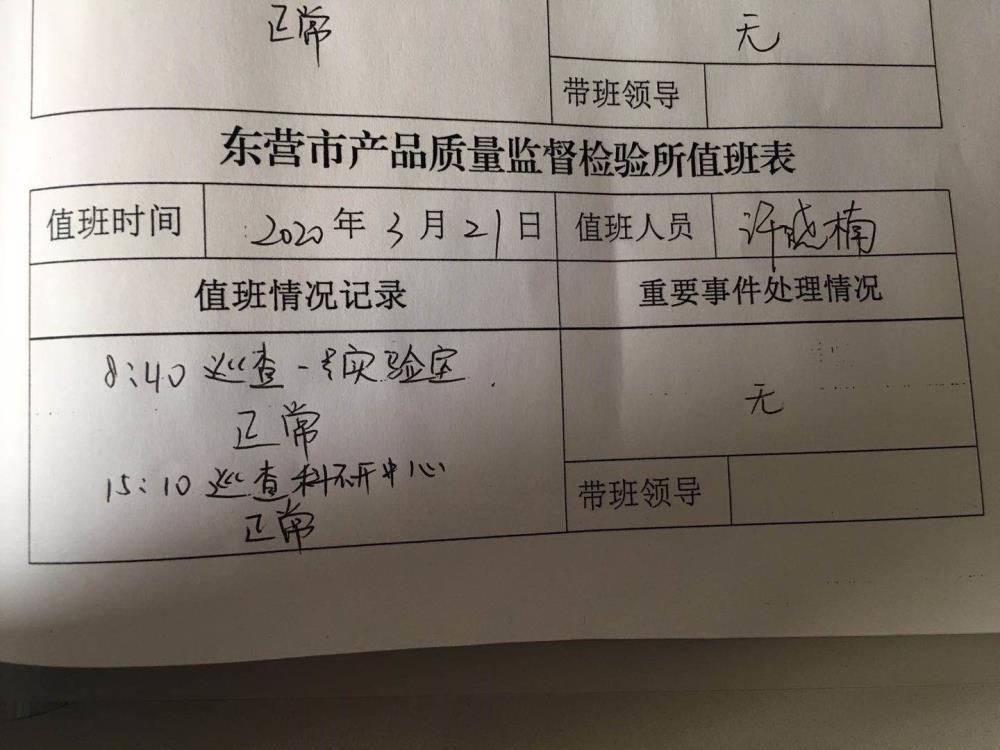 正常
无
带班领导
东营市产品质量监督检验所值班表
值班时间 2020年3月21日 值班人员 许晓楠
值班情况记录 重要事件处理情况
8:40 巡查一号实验室
正常
无
15:10 巡查科研中心
正常
带班领导